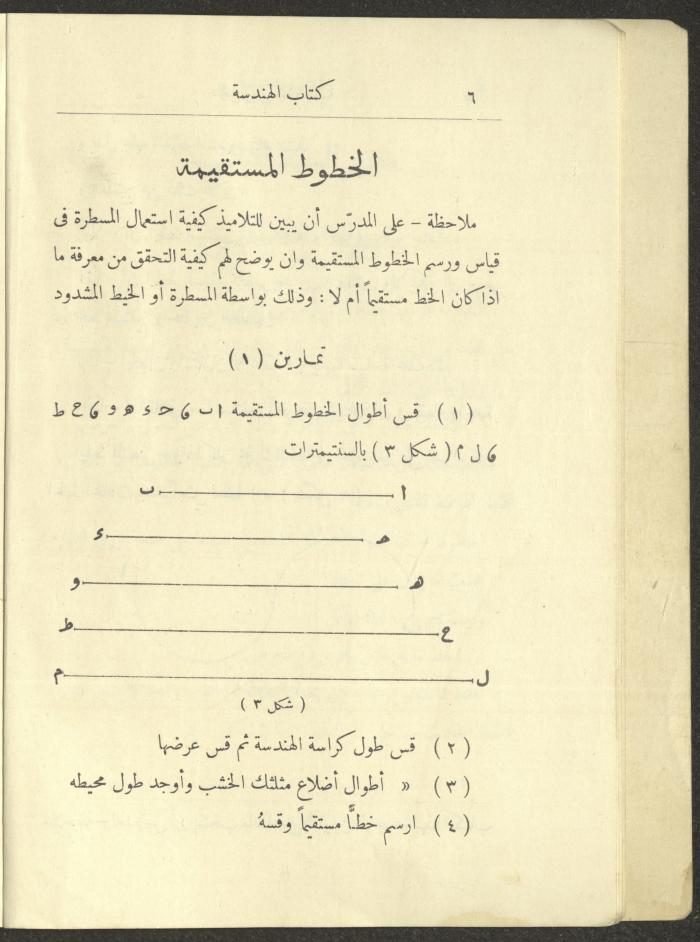 ٦ كتاب الهندسة
الخطوط المستقيمة
ملاحظة – على المدرّس أن يبين للتلاميذ كيفية استعمال المسطرة فى
قياس ورسم الخطوط المستقيمة وان يوضح لهم كيفية التحقق من معرفة ما
اذا كان الخط مستقيماً أم لا : وذلك بواسطة المسطرة أو الخيط المشدود
تمارين (١)
(١) قس أطوال الخطوط المستقيمة ا ب ، ح ء ، ه و ، ح ط
، ل م (شكل ٣) بالسنتيمترات
ا ب
ح ء
ه و
ح ط
ل م
(شكل ٣)
(٢) قس طول كراسة الهندسة ثم قس عرضها
(٣) « أطوال أضلاع مثلثك الخشب وأوجد طول محيطه
(٤) ارسم خطـًّا مستقيماً وقسهُ